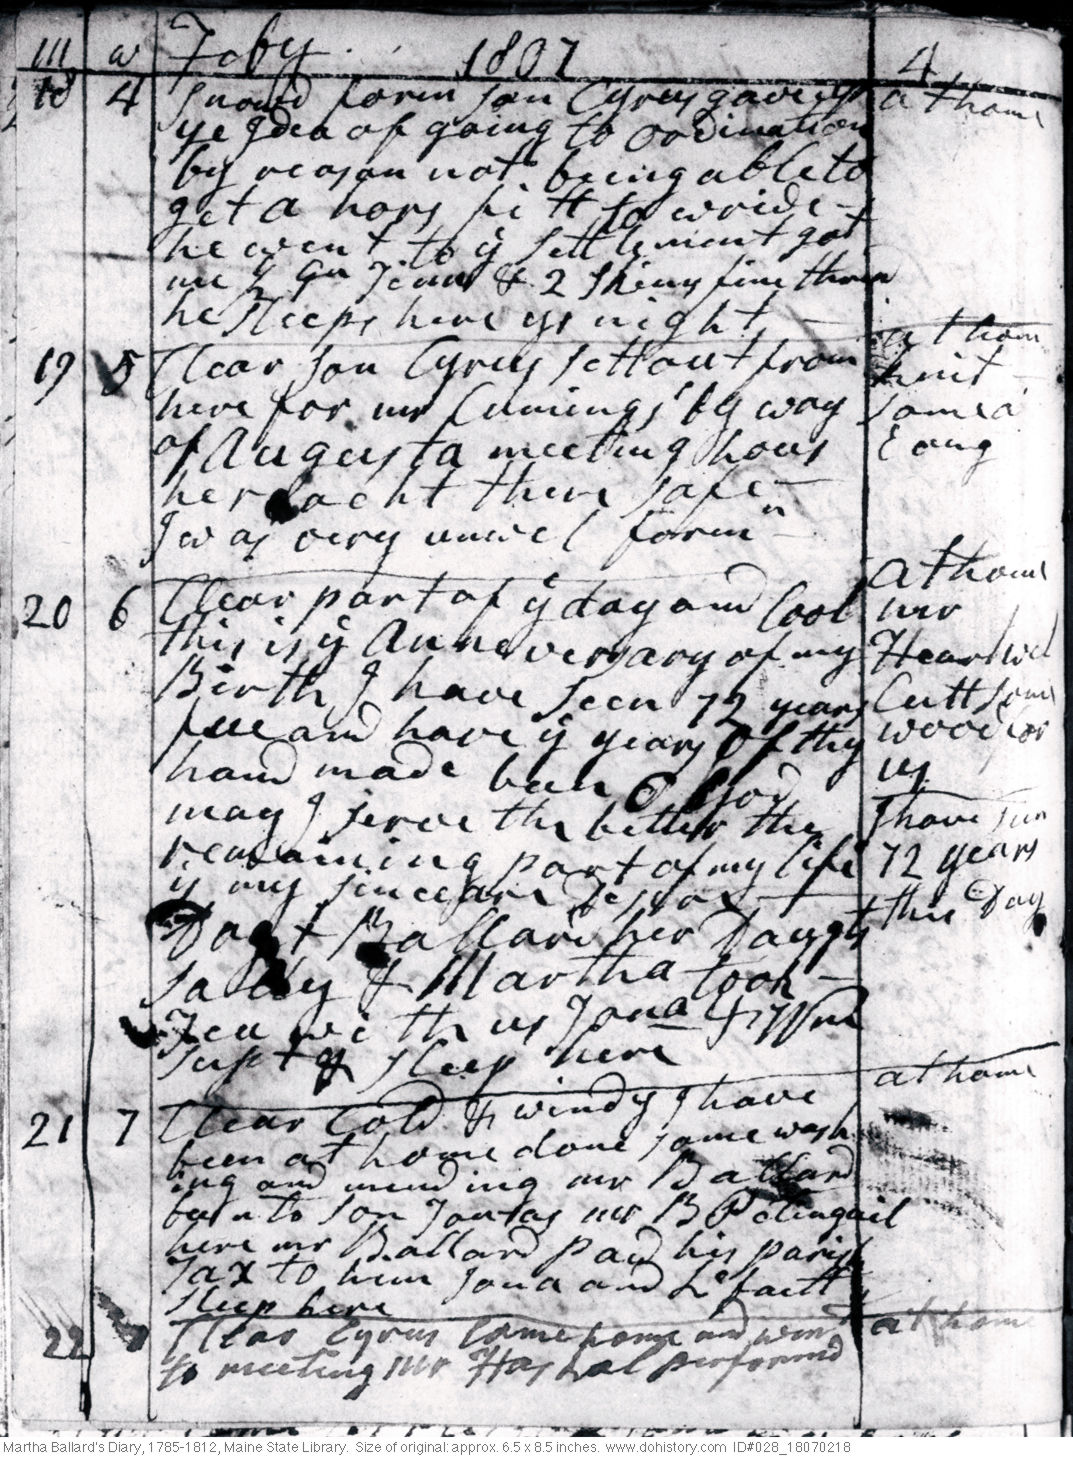 m w Feby 1807 4
18 4 Snowd forin son Cyrus gave up at home
ye Idea of going to Ordination
by reason not being able to
get a hors fitt to wride -
he went to ÿ settlement got
me & 2 Skins fine thread
he sleeps here ys night - at home
19 5 Clear son Cyrus sett out from knit
here for mr Cumings' by way some a
of Augusta meeting hous Long
he reacht there safe -
I was very unwel forin n
20 6 Clear part of ÿ day and Cool at home
this is ÿ Anneversary of my mr
Birth I have seen 72 years Cutt some
full and have ÿ years of thy wood for
hand made been O God us
may I serve the better the I have
remaining part of my life 72 years
is my sinceare desire - this Day
Dagt Ballard her Daugts
Sally & Martha took -
Tea with us Jona & Wm
supt & sleep here
21 7 Clear Cold & windy I have at home
been at home done some wash
ing and mending mr Ballard
been to son Jonas mr B Petinguil
here mr Ballard paid his parish
Tax to him Jona and
sleep here
22 Clear Cyrus Came home and went at home
to meeting mr Haskal performd
Martha Ballard's Diary, 1785-1812, Maine State Library. Size of original: approx. 6.5 x 8.5 inches. www.dohistory.com ID#028_18070218